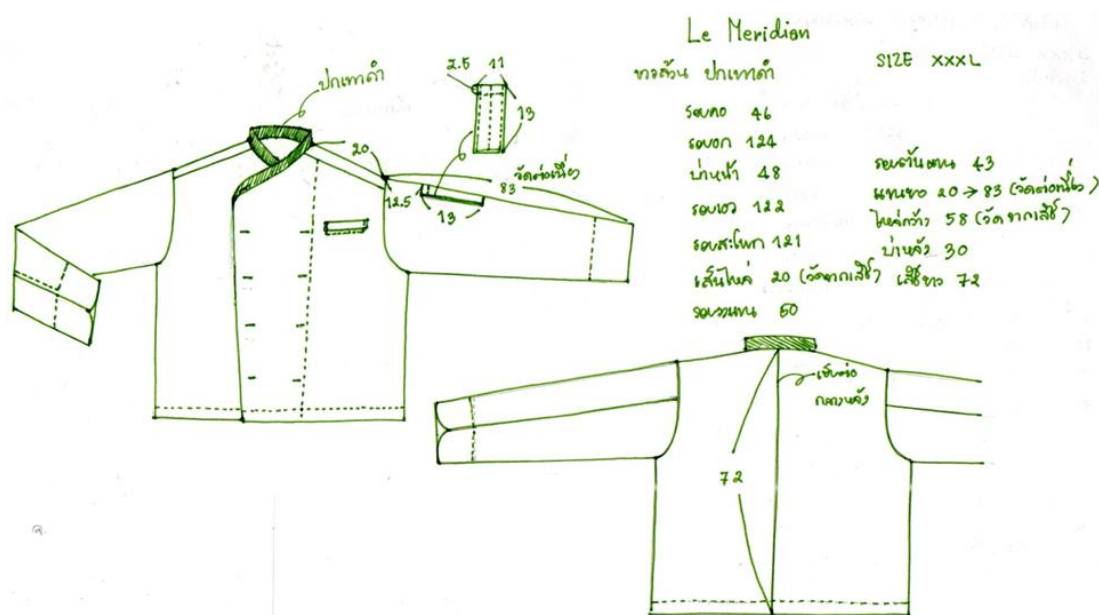 Le Meridian
SIZE XXXL
ขาวล้วน ปกเทาดำ
รอบคอ 46
รอบอก 124
บ่าหน้า 48
รอบเอว 122
รอบสะโพก 121
เส้นไหล่ 20 (วัดจากเสื้อ)
รอบวงแขน 50
แขนยาว 20 → 83 (วัดต่อเนื่อง)
ไหล่กว้าง 58 (วัดจากเสื้อ)
บ่าหลัง 30
เสื้อยาว 72
43
ปกเทาดำ
2.5
11
13
20
วัดต่อเนื่อง
83
12.5
13
เย็บต่อ
กลางหลัง
72